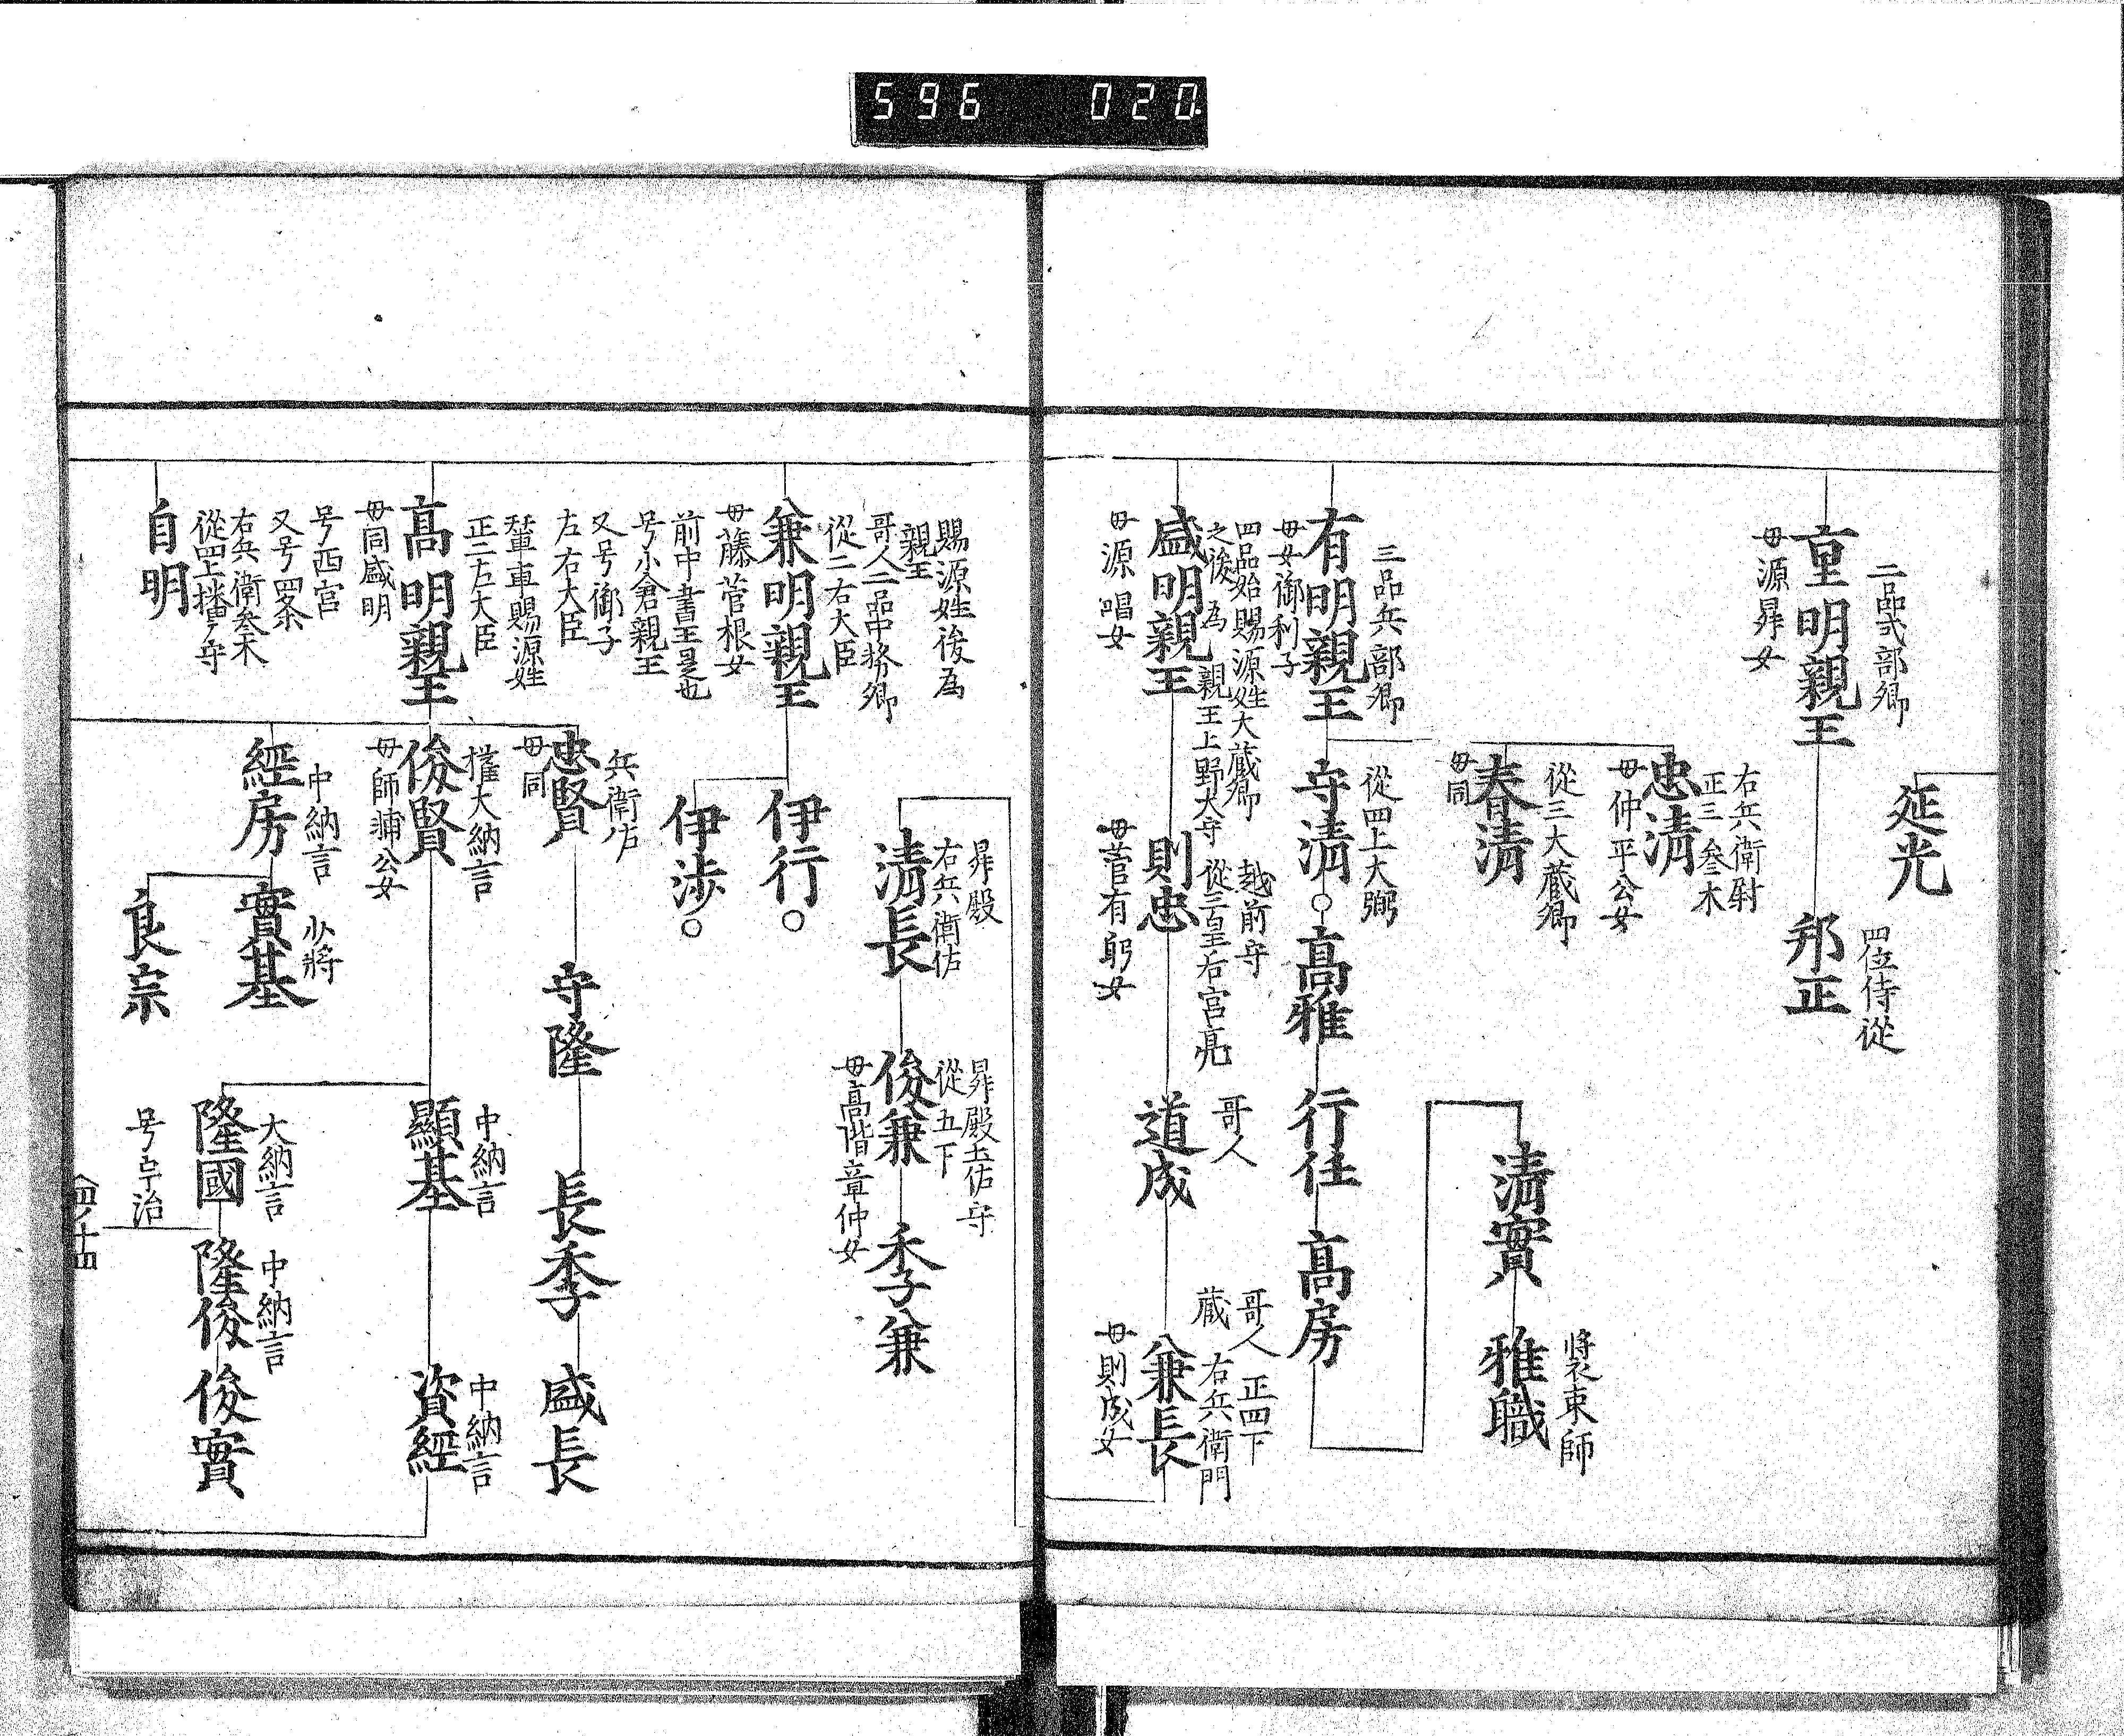 596 020
延光
二品式部卿
重明親王
母源昇女
四位侍從
邦正
右兵衛尉
正三叅木
忠淸
母仲平公女
從三大蔵卿
春淸
母同
淸實
裝束師
雅職
三品兵部卿
有明親王
母女御利子
從四上大弼
守淸
髙雅
行任
髙房
四品始賜源姓大蔵卿
之後為親王上野大守
盛明親王
母源唱女
越前守
從三皇后宮亮
則忠
母菅有躬女
哥人
道成
哥人正四下
蔵右兵衛門
兼長
母則成女
昇殿
右兵衛佐
淸長
從五下
俊兼
母高諧章仲女
季兼
賜源姓後為
親王
哥人二品中務卿
從二右大臣
兼明親王
母藤菅根女
前中書王是也
号小倉親王
又号御子
左右大臣
伊行
伊渉
輦車賜源姓
正二左大臣
髙明親王
母同盛明
号西宮
又号四条
兵衛佐
忠賢
母同
守隆
長季
盛長
權大納言
俊賢
母師輔公女
中納言
顯基
中納言
資經
大納言
隆國
号宇治
中納言
隆俊
俊實
中納言
經房
少將
實基
良宗
右兵衛叅木
自明
四ノ十四